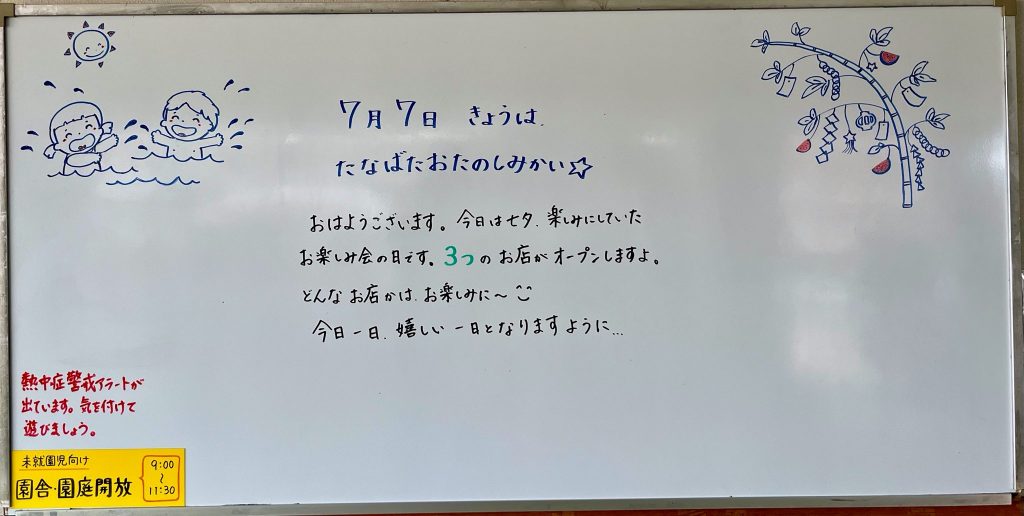 7月7日 きょうは、
たなばたおたのしみかい☆
おはようございます。今日は七夕、楽しみにしていた
お楽しみ会の日です。3つのお店がオープンしますよ。
どんなお店かは、お楽しみに〜
今日一日、嬉しい一日となりますように…
熱中症警戒アラートが
出ています。気を付けて
遊びましょう。
未就園児向け
園舎・園庭開放
9:00
〜
11:30